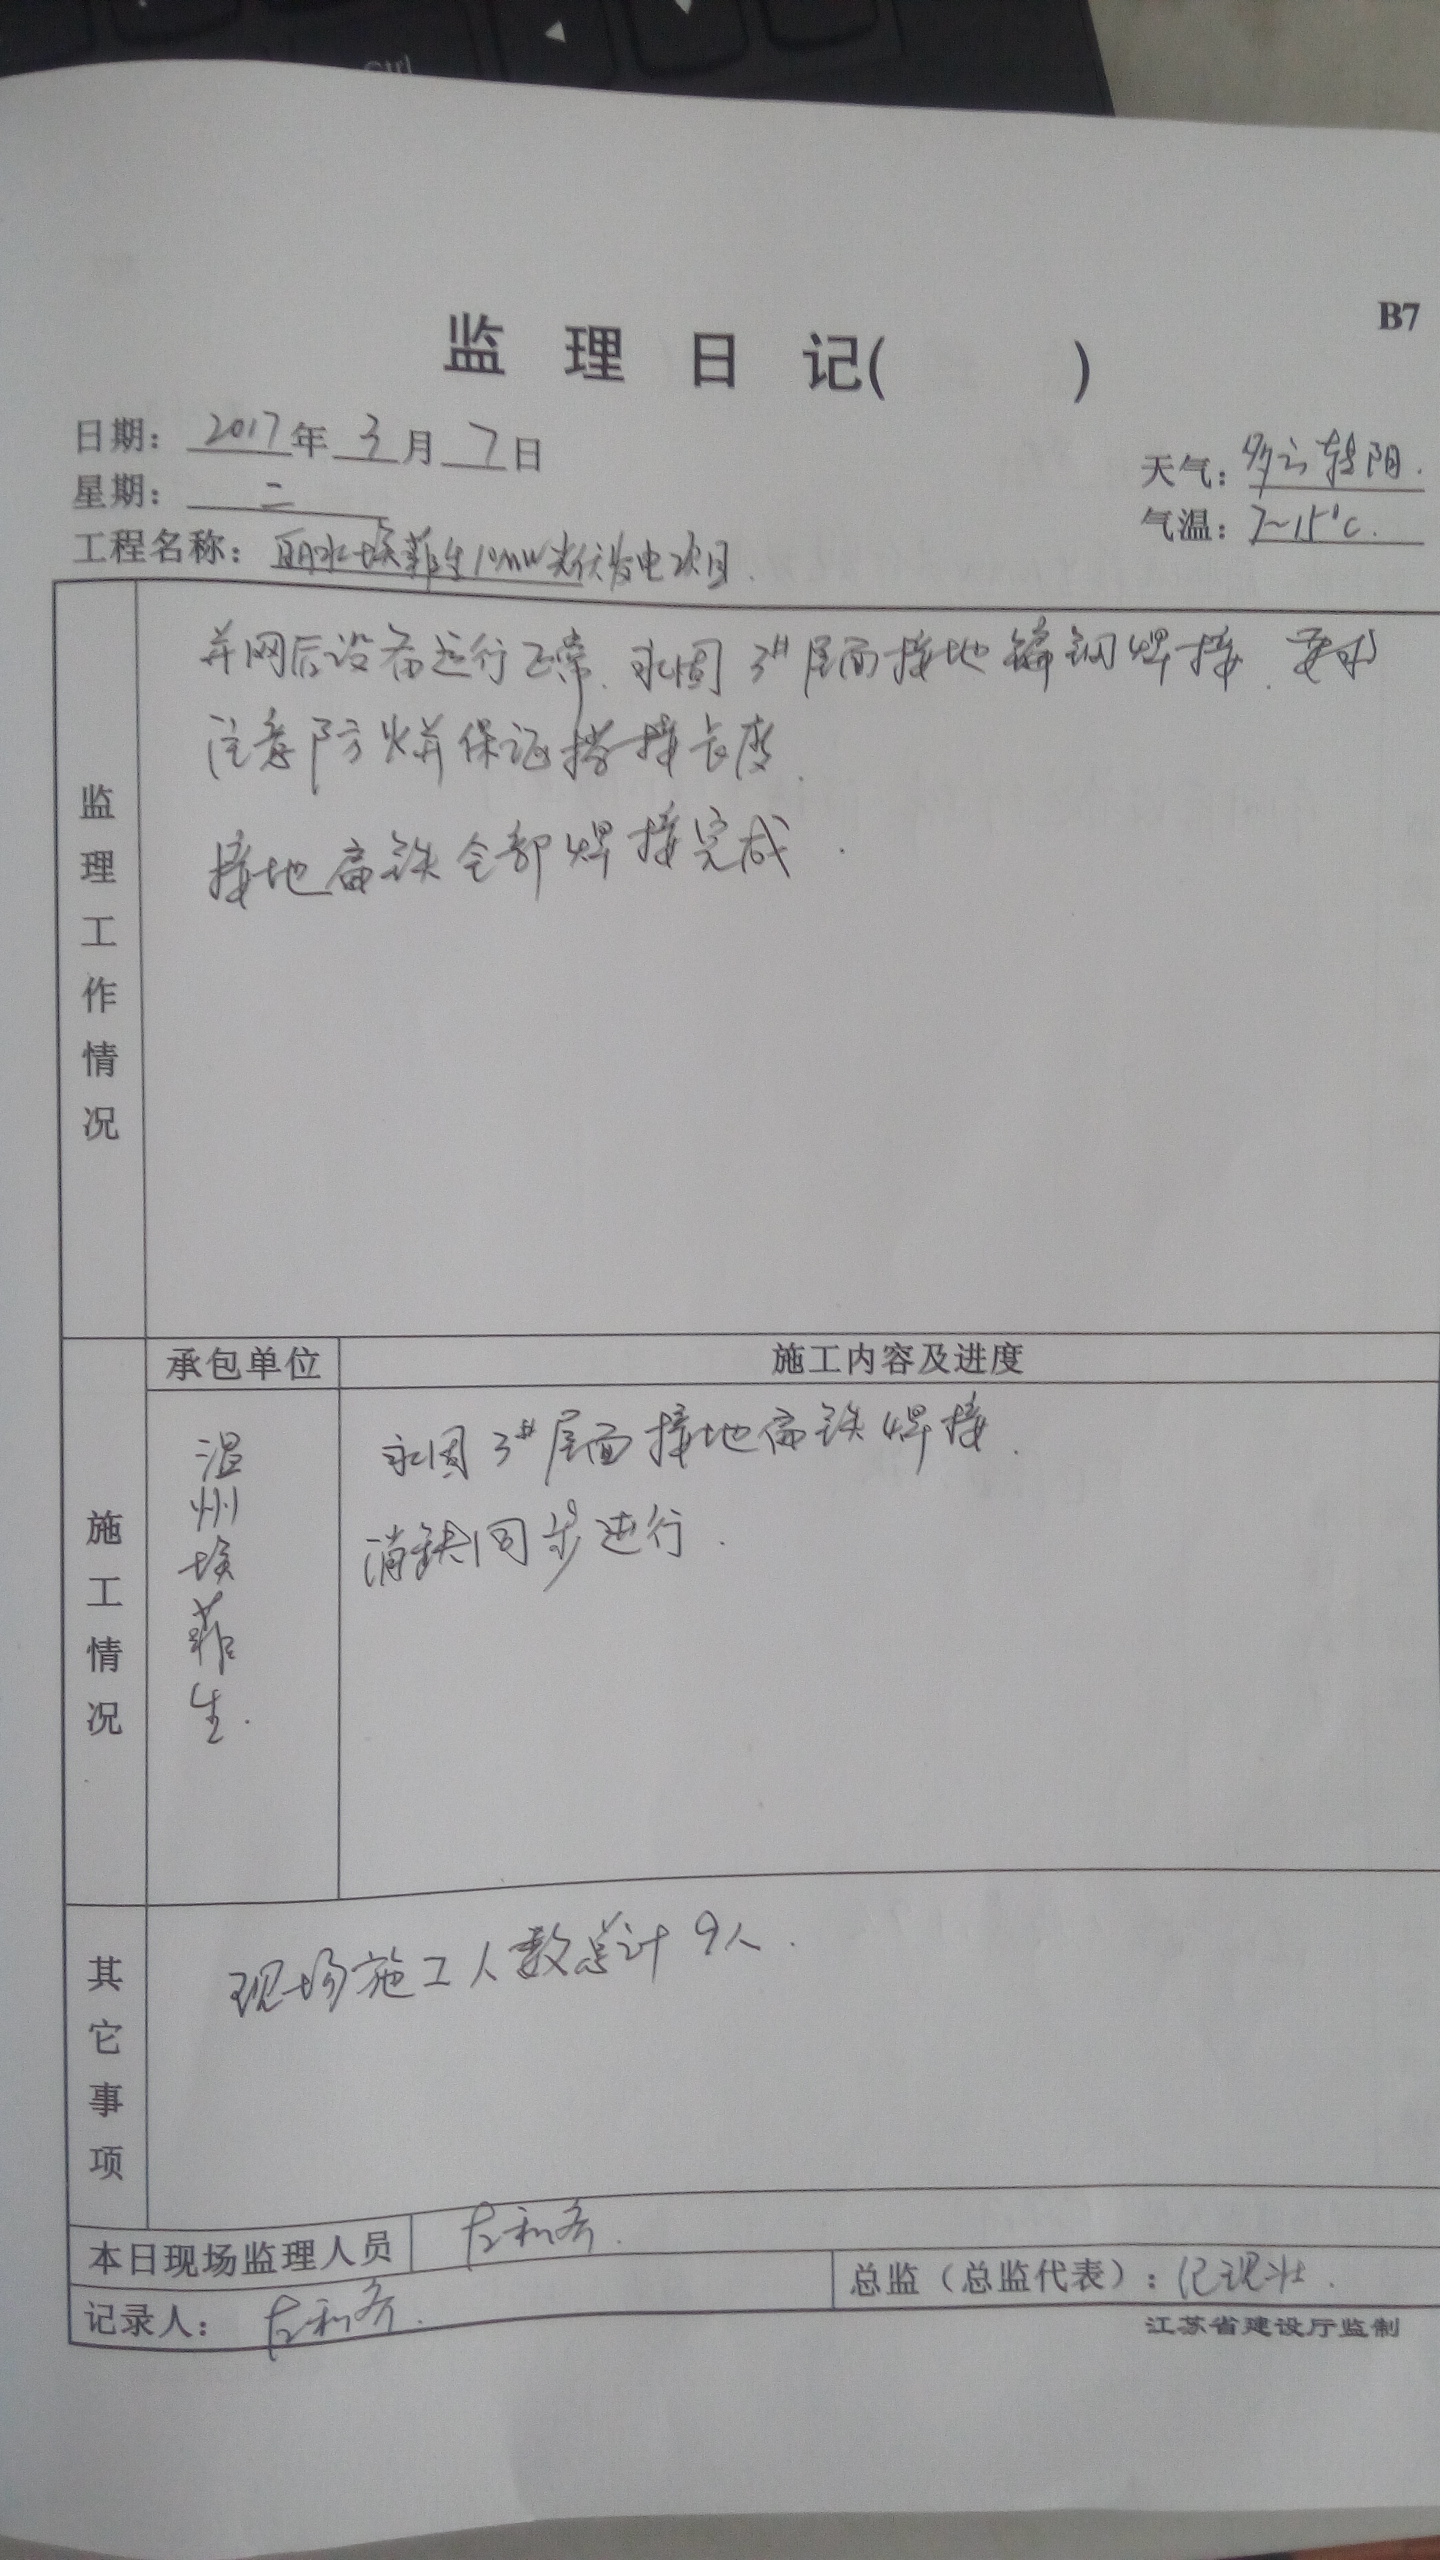 ctrl
B7
监理日记( )
日期：2017年3月7日
天气：多云转阴.
星期：二
气温：7~15℃.
工程名称：丽水埃菲生10MW光伏发电项目.
监理工作情况
并网后设备运行正常.永固3#屋面接地扁钢焊接.要求
注意防火并保证搭接长度.
接地扁铁全部焊接完成.
施工情况
承包单位
施工内容及进度
温州埃菲生.
永固3#屋面接地扁铁焊接.
消缺同步进行.
其它事项
现场施工人数总计9人.
本日现场监理人员
总监（总监代表）：
记录人：
江苏省建设厅监制